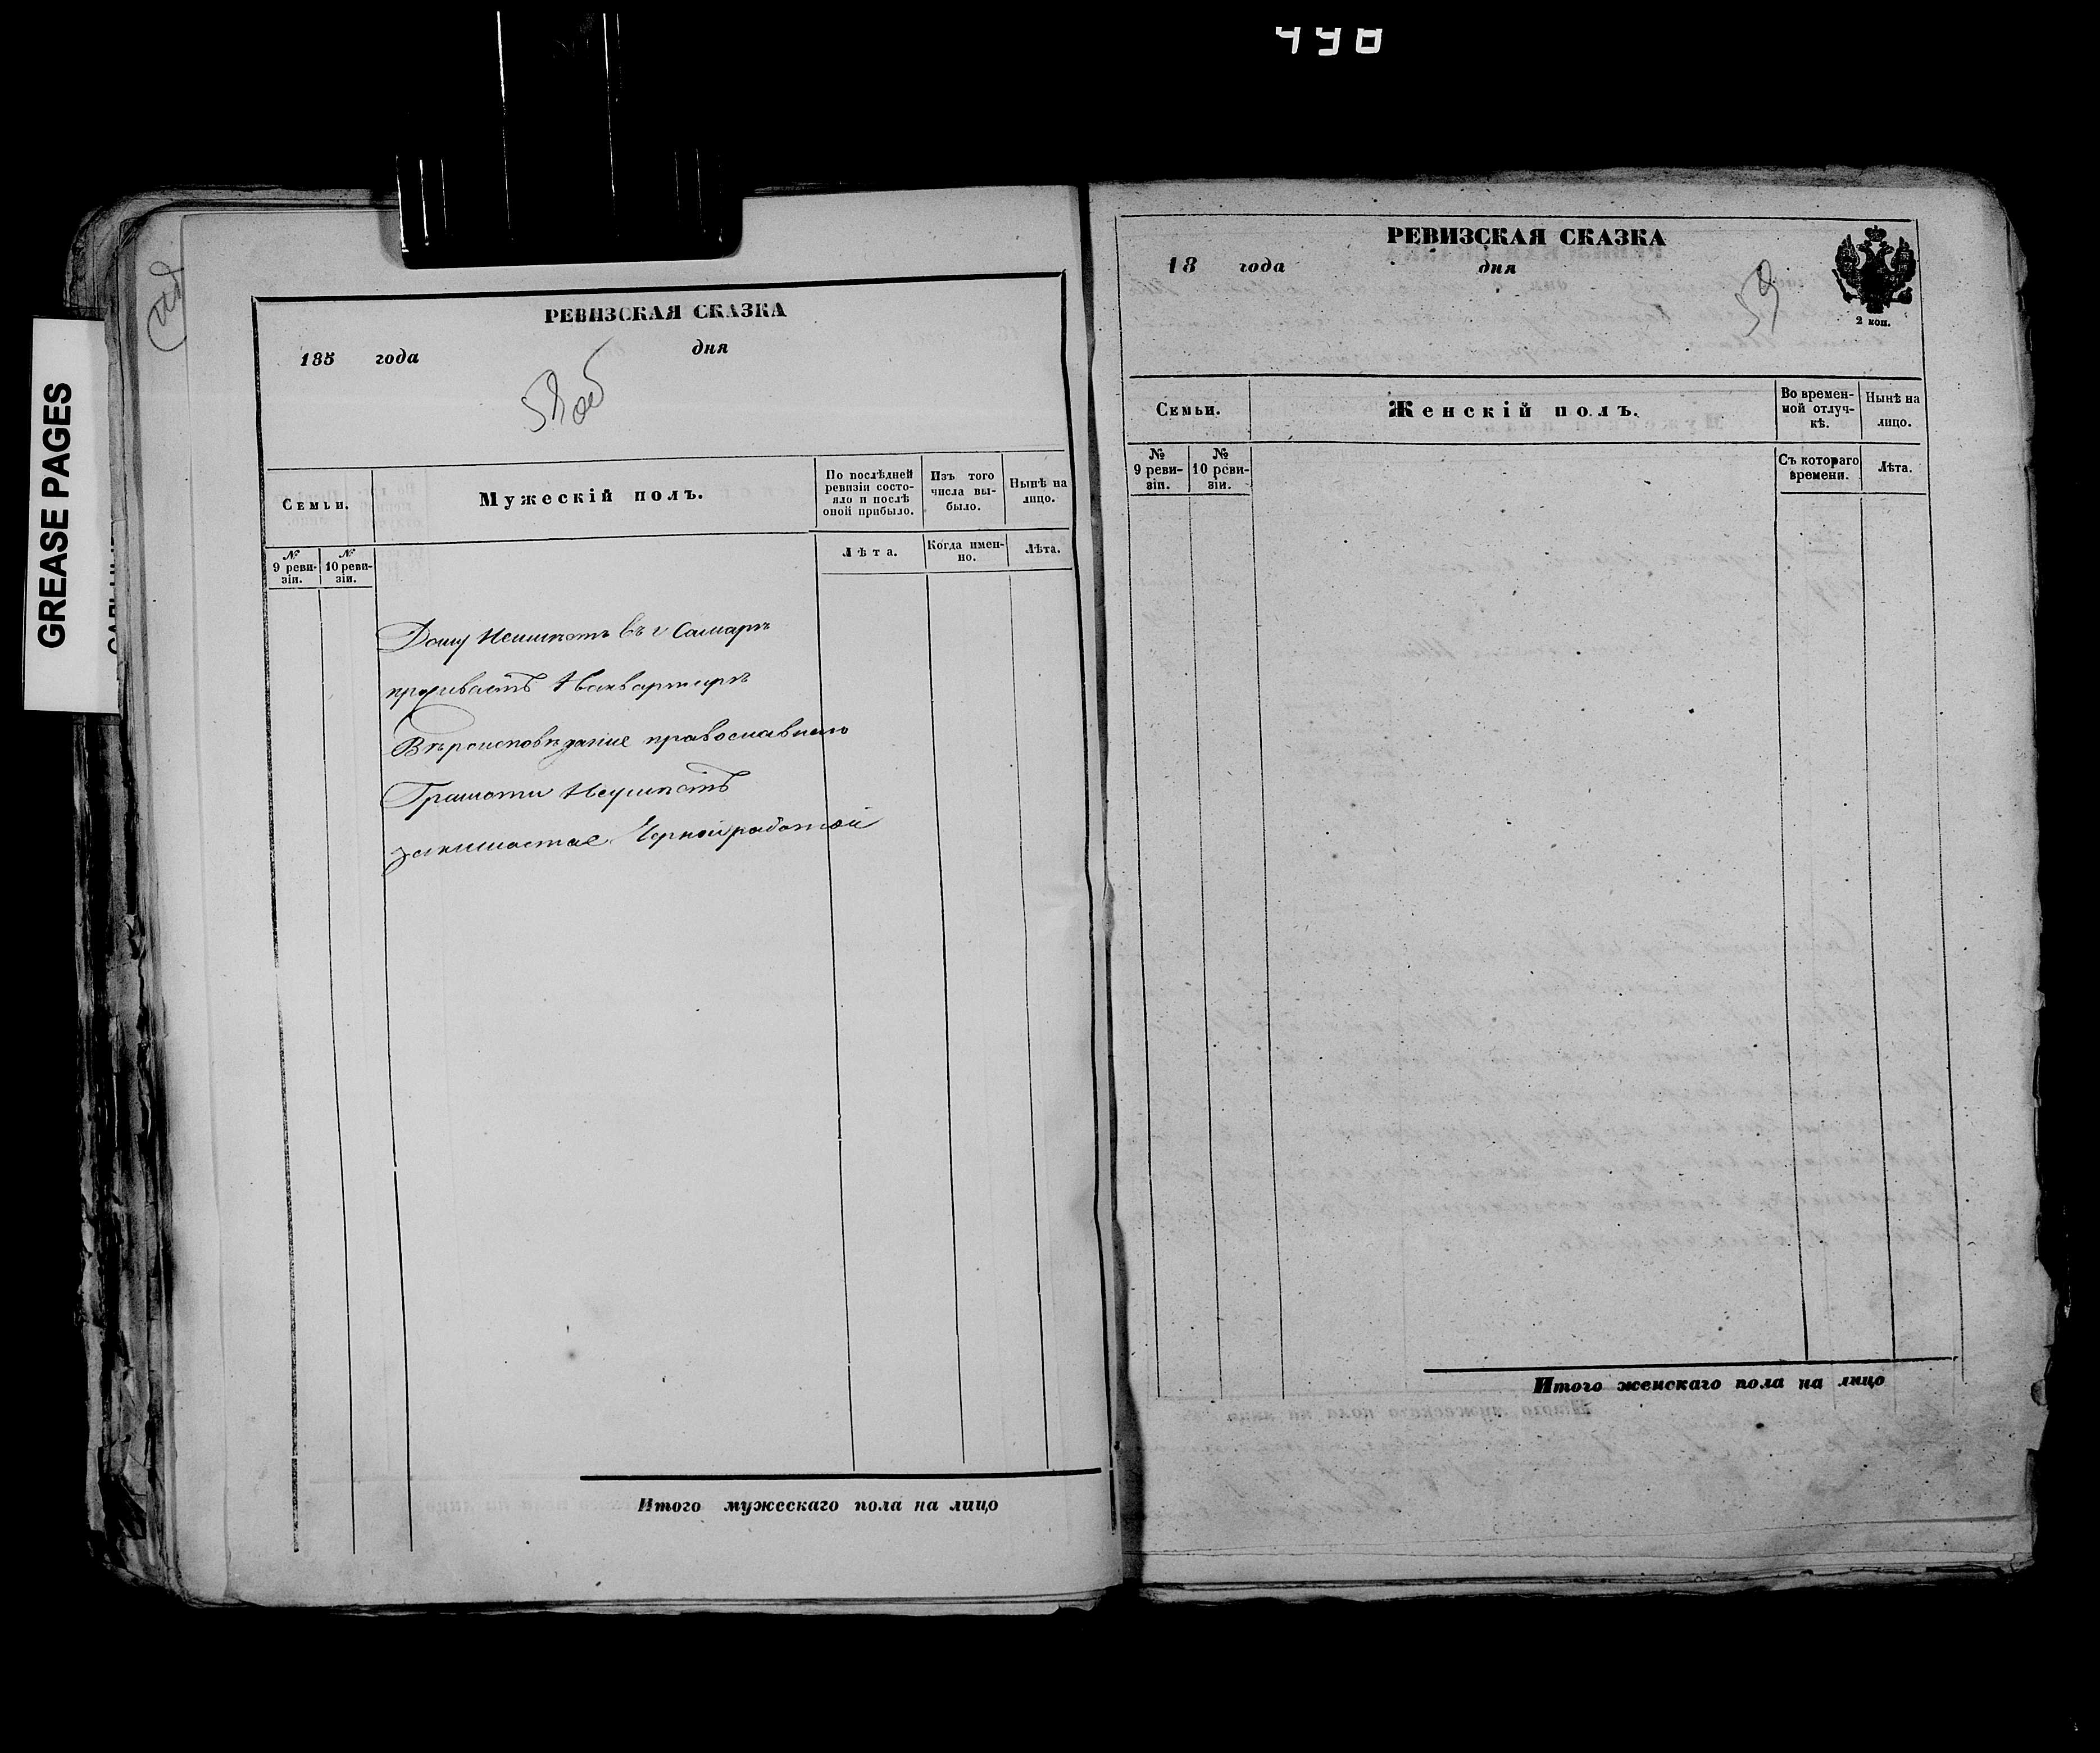 490
GREASE PAGES
РЕВИЗСКАЯ СКАЗКА
185 года дня
58 об
Семьи.
Мужескій полъ.
По послѣдней ревизіи состояло и послѣ оной прибыло.
Изъ того числа выбыло.
Нынѣ на лицо.
№ 9 ревизіи.
№ 10 ревизіи.
Лѣта.
Когда именно.
Лѣта.
Дому Неимѣетъ въ г Самарѣ
проживаетъ Наквартирѣ
Вѣроисповѣдание православнаго
Грамоти Неумѣетъ
занимается Чернойработой
Итого мужескаго пола на лицо
РЕВИЗСКАЯ СКАЗКА
18 года дня
59
2 коп.
Семьи.
Женскій полъ.
Во временной отлучкѣ.
Нынѣ на лицо.
№ 9 ревизіи.
№ 10 ревизіи.
Съ котораго времени.
Лѣта.
Итого женскаго пола на лицо